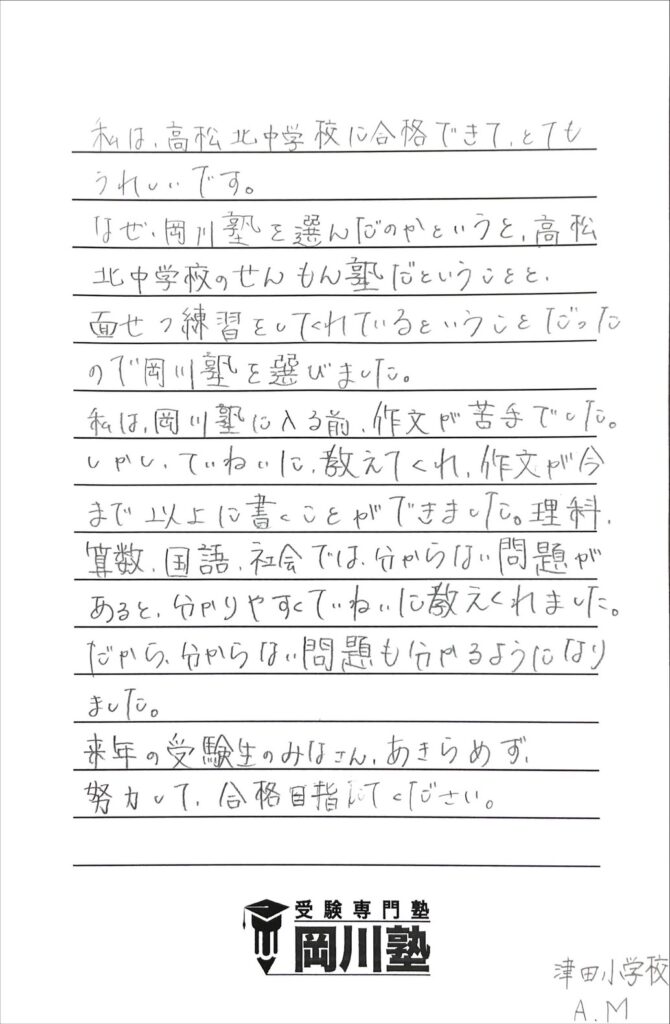 私は、高松北中学校に合格できて、とても
うれしいです。
なぜ、岡川塾を選んだのかというと、高松
北中学校のせんもん塾だということと、
面せつ練習をしてくれているということだった
ので岡川塾を選びました。
私は、岡川塾に入る前、作文が苦手でした。
しかし、ていねいに、教えてくれ、作文が今
まで以上に書くことができました。理科、
算数、国語、社会では、分からない問題が
あると、分かりやすくていねいに教えくれました。
だから、分からない問題も分かるようになり
ました。
来年の受験生のみなさん、あきらめず、
努力して、合格目指してください。
受験専門塾
岡川塾
津田小学校
A.M